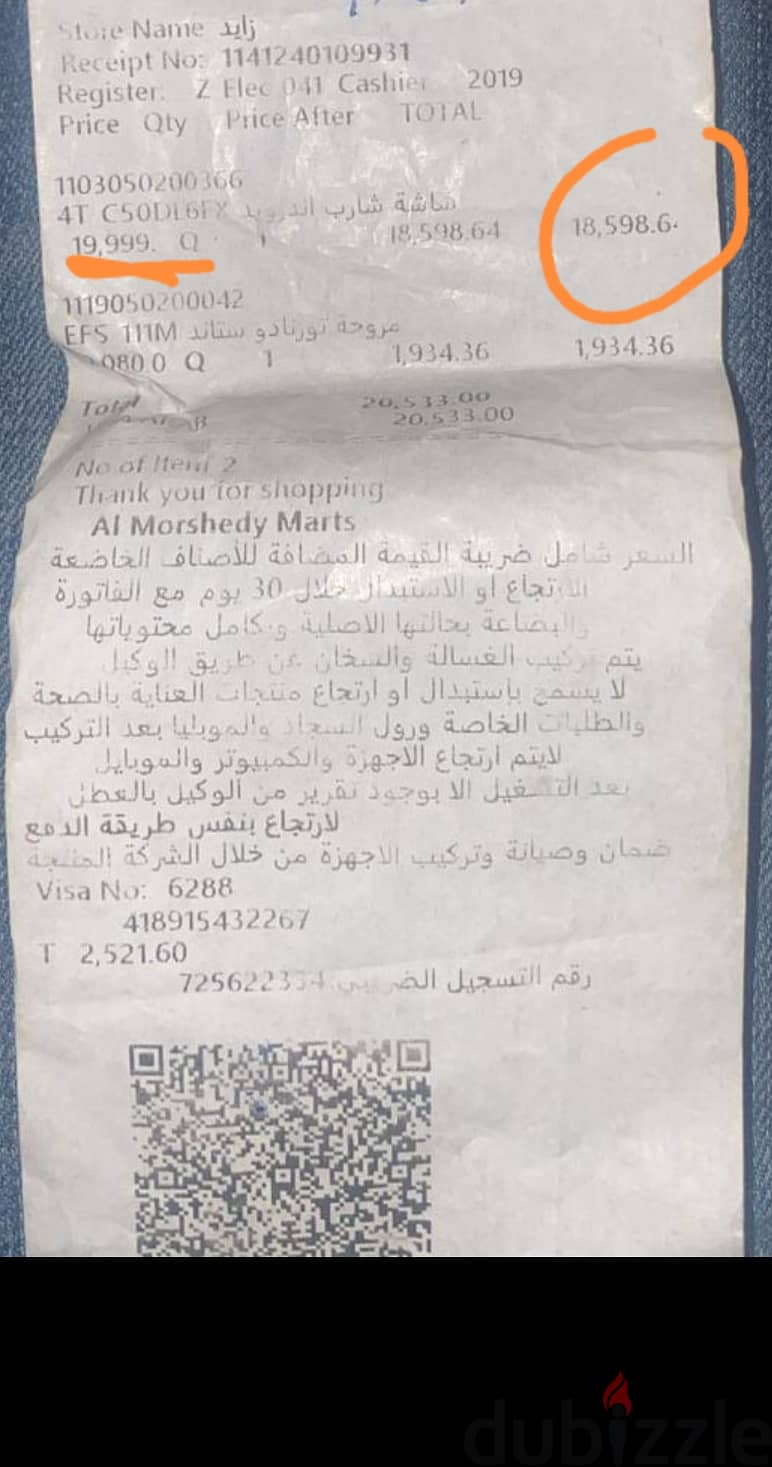 Store Name زايد
Receipt No: 1141240109931
Register: Z Elec 041 Cashier 2019
Price Qty Price After TOTAL
1103050200366
4T C50DL6FX شاشة شارب اندرويد
19,999. Q 1 18,598.64 18,598.6
1119050200042
EFS 111M مروحة تورنادو ستاند
080.0 Q 1 1,934.36 1,934.36
Total 20,533.00
20,533.00
No of Item 2
Thank you for shopping
Al Morshedy Marts
السعر شامل ضريبة القيمة المضافة للأصناف الخاضعة
الارتجاع او الاستبدال خلال 30 يوم مع الفاتورة
والبضاعة بحالتها الاصلية وكامل محتوياتها
يتم تركيب الغسالة والسخان عن طريق الوكيل
لا يسمح بإستبدال او ارتجاع منتجات العناية بالصحة
والطلبات الخاصة ورول السجاد والموبليا بعد التركيب
لايتم ارتجاع الاجهزة والكمبيوتر والموبايل
بعد التشغيل الا بوجود تقرير من الوكيل بالعطل
لارتجاع بنفس طريقة الدفع
ضمان وصيانة وتركيب الاجهزة من خلال الشركة المنتجة
Visa No: 6288
418915432267
T 2,521.60
رقم التسجيل الضريبي 725622334
dubizzle